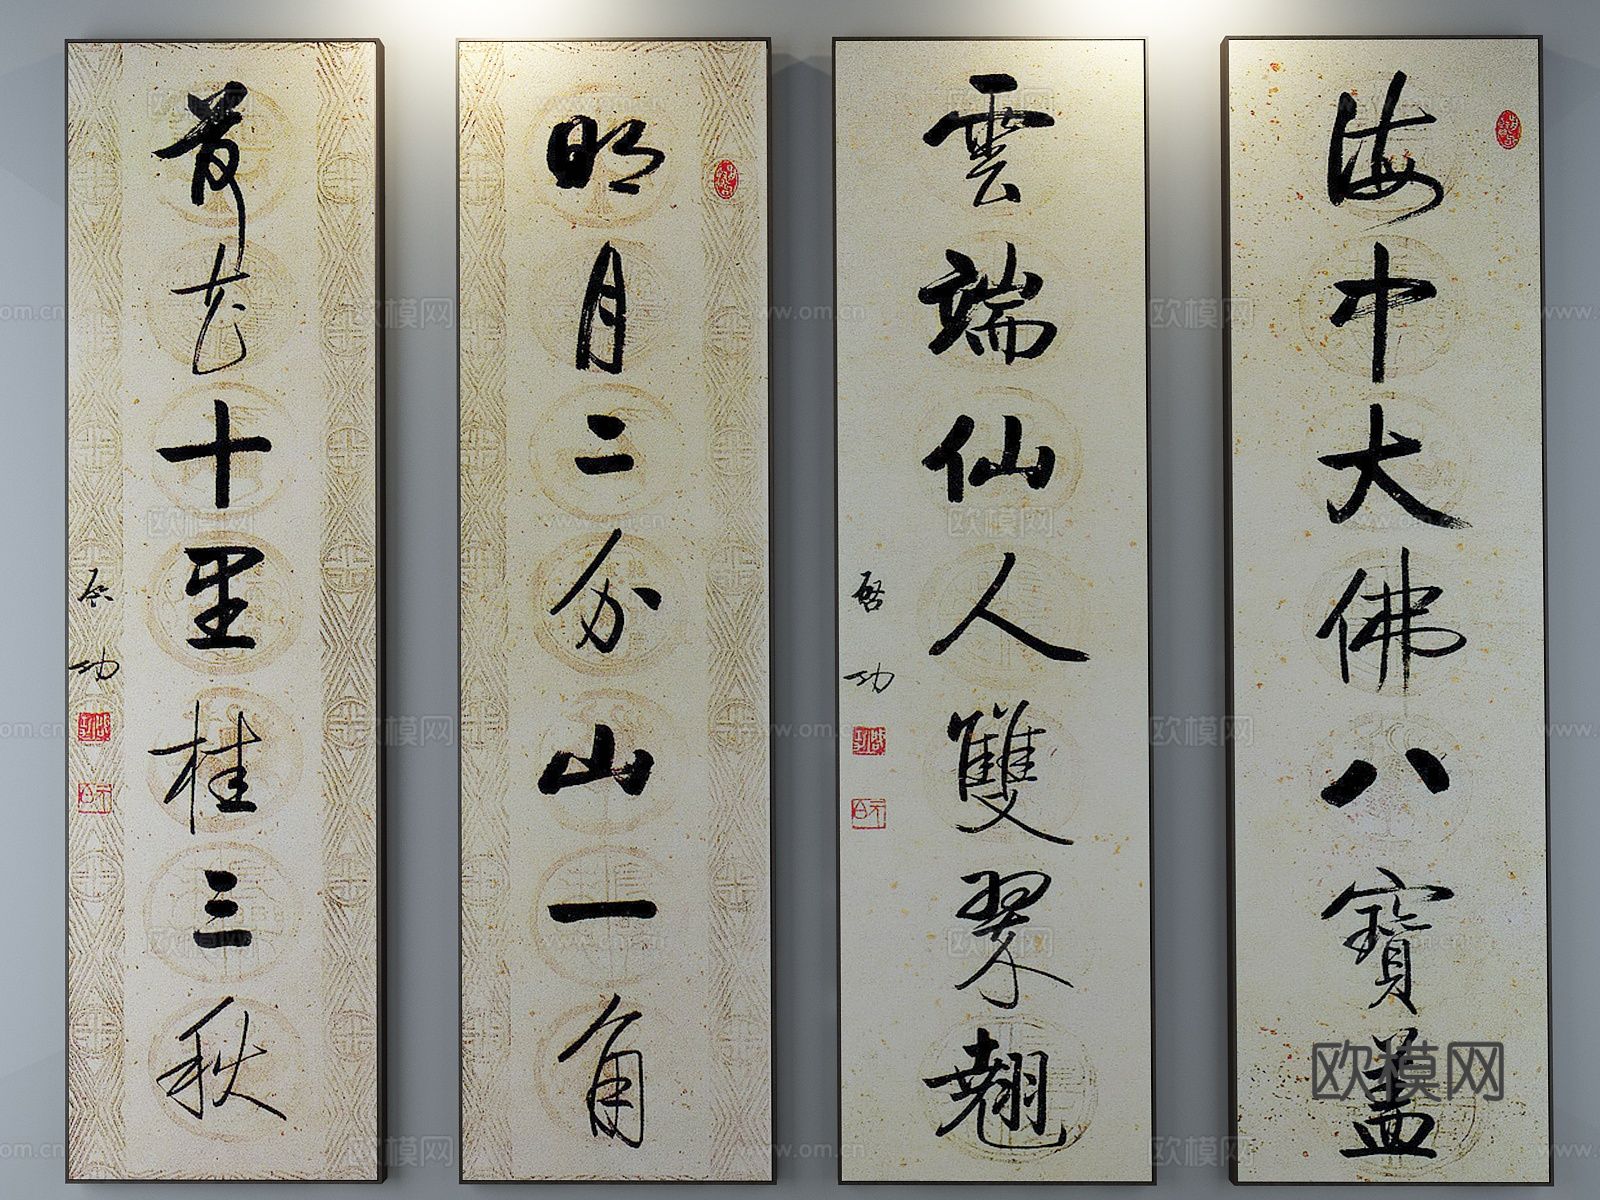 海中大佛八寶蓋
雲端仙人雙翠翹
啓功
明月二分山一角
荷花十里桂三秋
启功
欧模网
www.om.cn